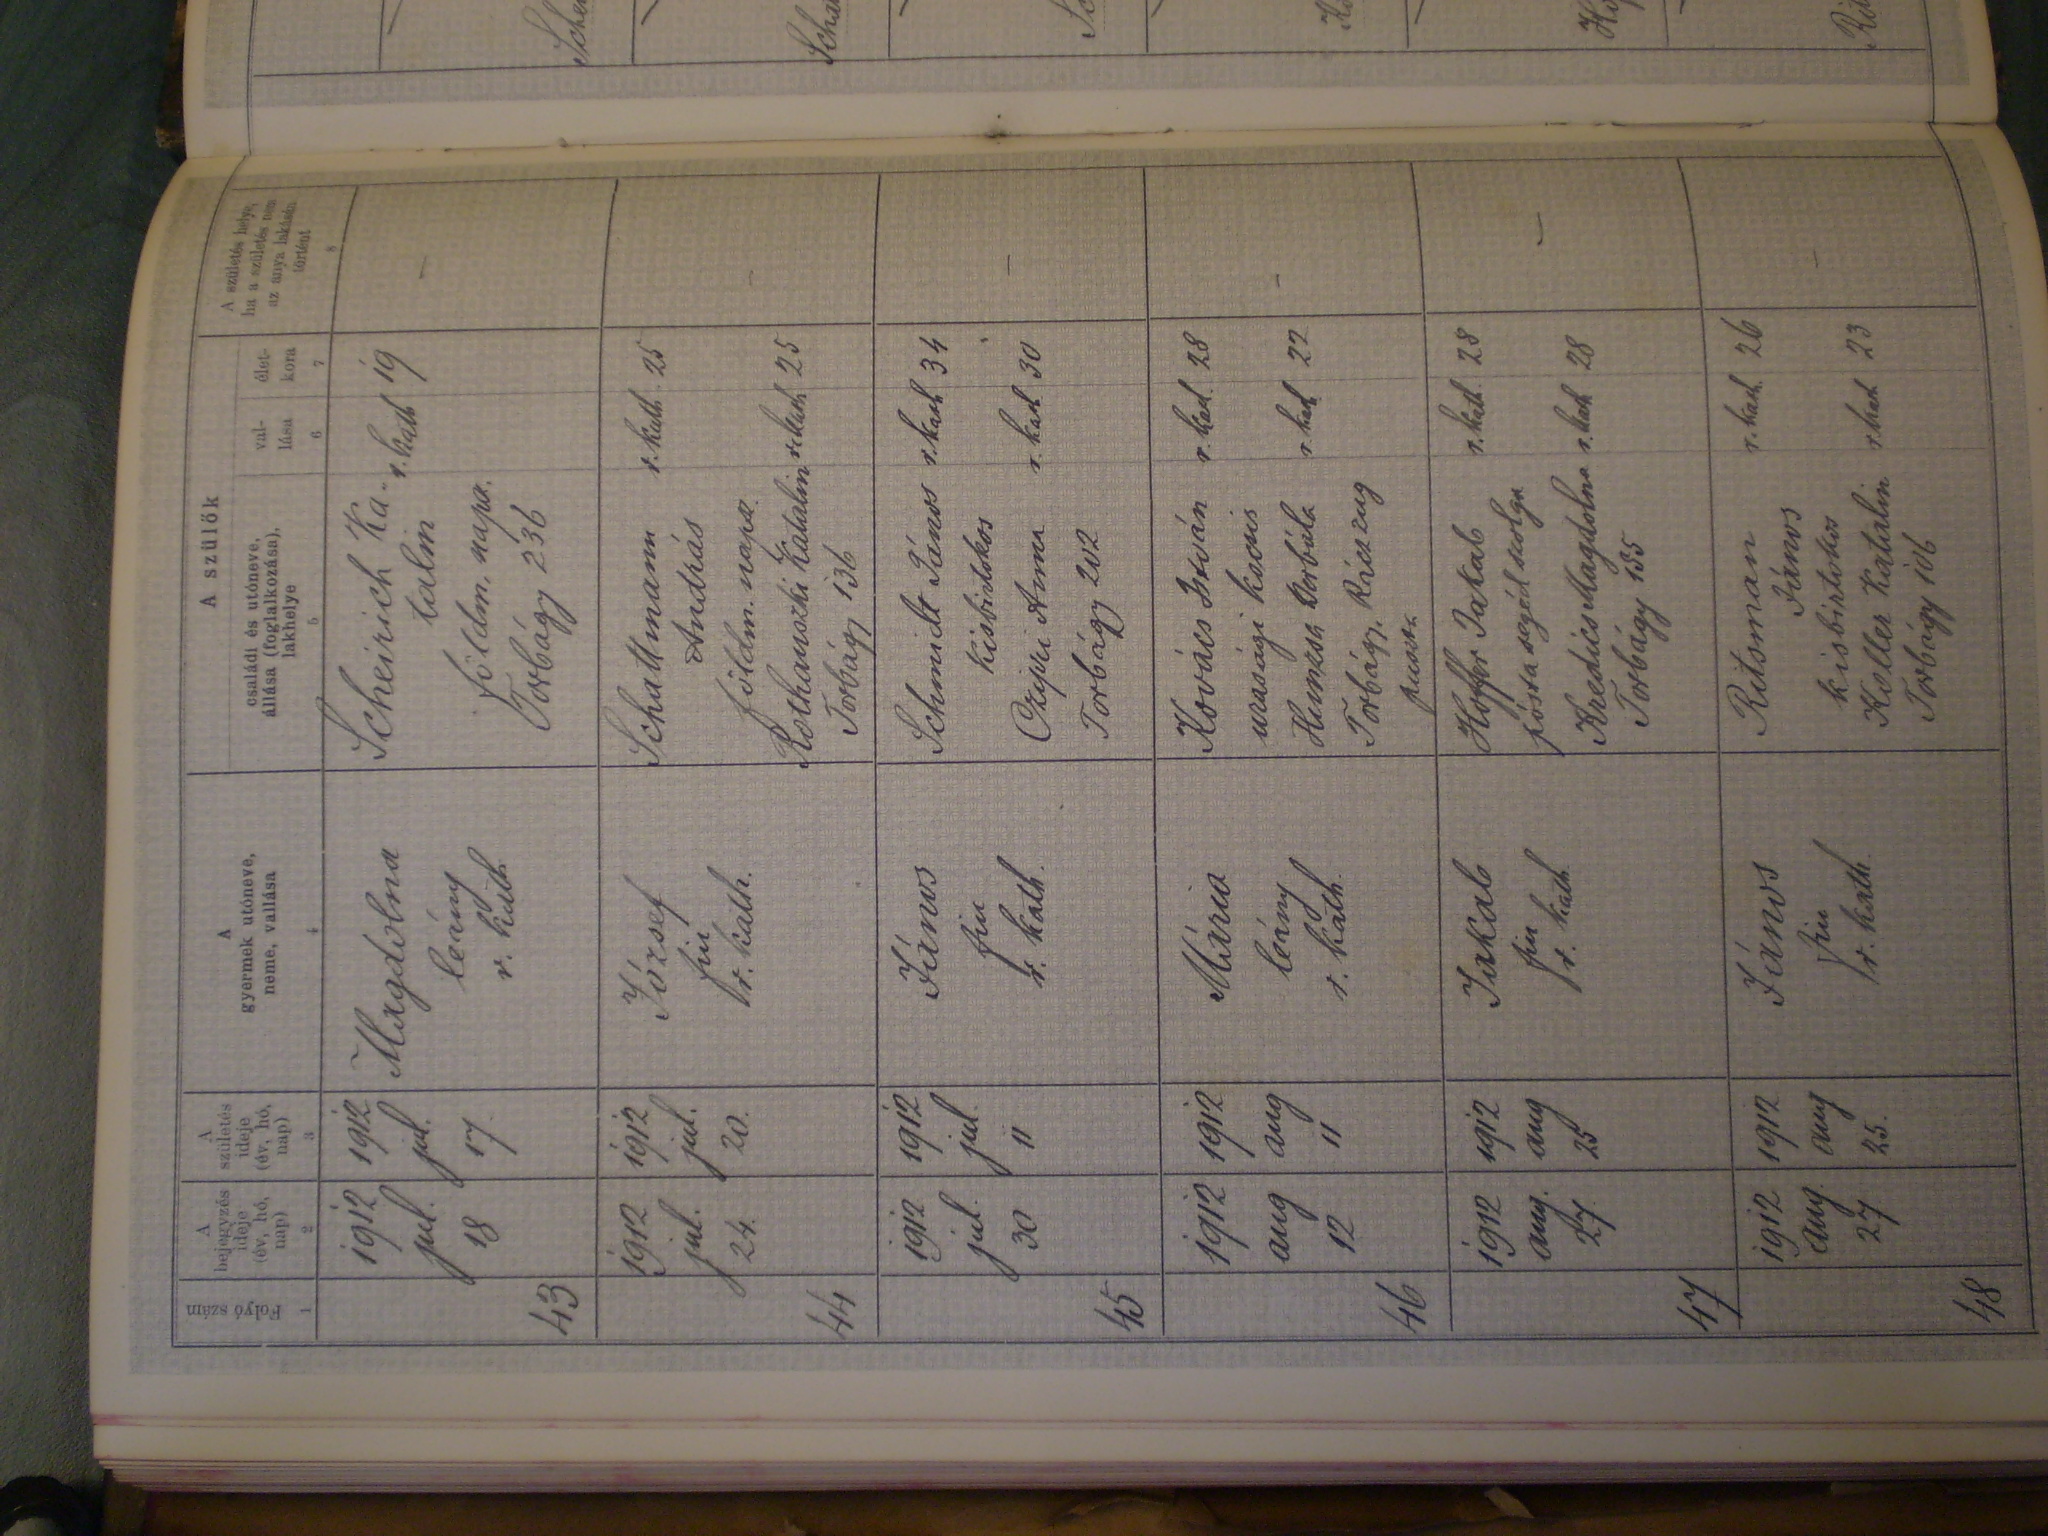 Folyó szám
1
A
bejegyzés
ideje
(év, hó,
nap)
2
A
születés
ideje
(év, hó,
nap)
3
A
gyermek utóneve,
neme, vallása
4
A szülők
családi és utóneve,
állása (foglalkozása),
lakhelye
5
val-
lása
6
élet-
kora
7
A születés helye,
ha a születés nem
az anya lakásán
történt
8
43
1912
jul.
18
1912
jul.
17.
Magdolna
leány
r. kath
Scheirich Ka-
talin
földm. naps.
Torbágy 236
r. kath 19
—
44
1912
jul.
24.
1912
jul.
20.
József
fiú
r. kath.
Schattmann
András
földm. naps.
Rothauszki Katalin
Torbágy 136
r. kath. 25
r. kath 25
—
45
1912
jul.
30
1912
jul.
11
János
fiu
r. kath.
Schmidt János
kisbirtokos
Czipri Anna
Torbágy 202
r. kath 34
r. kath 30
—
46
1912
aug
12
1912
aug
11
Mária
leány
r. kath.
Kovács István
urasági kocsis
Borbála
Torbágy.
puszta
r. kath. 28
r. kath 22
—
47
1912
aug.
27.
1912
aug
25
Jakab
fiu
r. kath.
Hoffer Jakab
pósta segédszolga
Kredics Magdolna
Torbágy 135
r. kath. 28
r. kath 28
—
48
1912
aug.
27
1912
aug
25.
János
fiu
r. kath.
Ritsman
János
kisbirtokos
Koller Katalin
Torbágy 106
r. kath. 26
r. kath 23
—